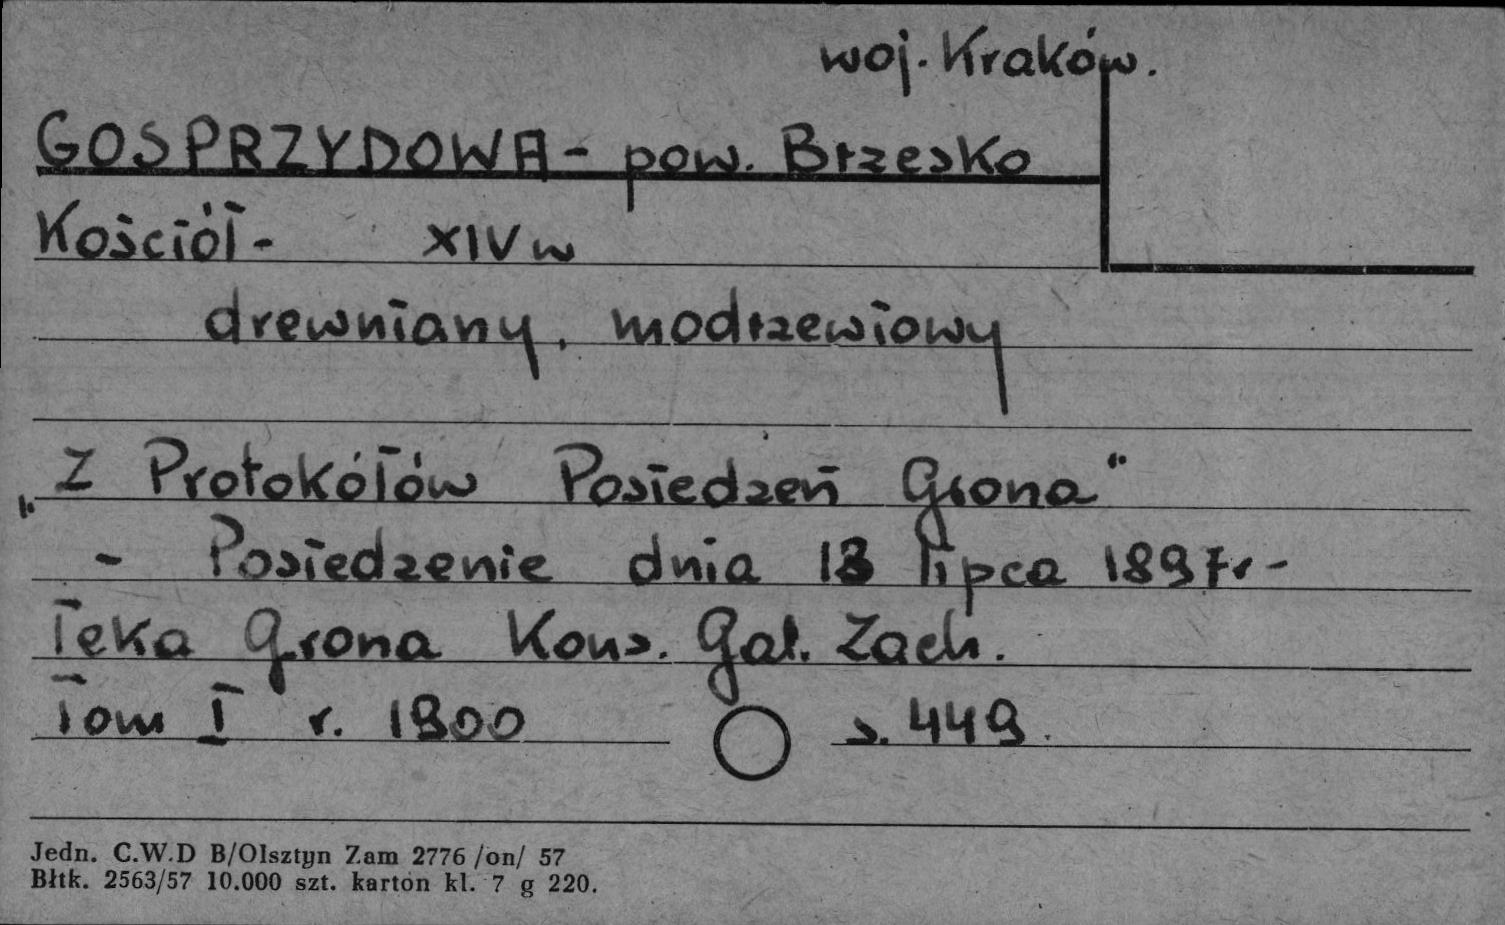 woj. Kraków.
GOSPRZYDOWA - pow. Brzesko
Kościół - XIV w
drewniany, modrzewiowy
„Z Protokółów Posiedzeń Grona“
- Posiedzenie dnia 13 lipca 1897 r -
Teka Grona Kons. Gal. Zach.
Tom I r. 1900 s. 449.
Jedn. C.W.D B/Olsztyn Zam 2776 /on/ 57
Błtk. 2563/57 10.000 szt. karton kl. 7 g 220.